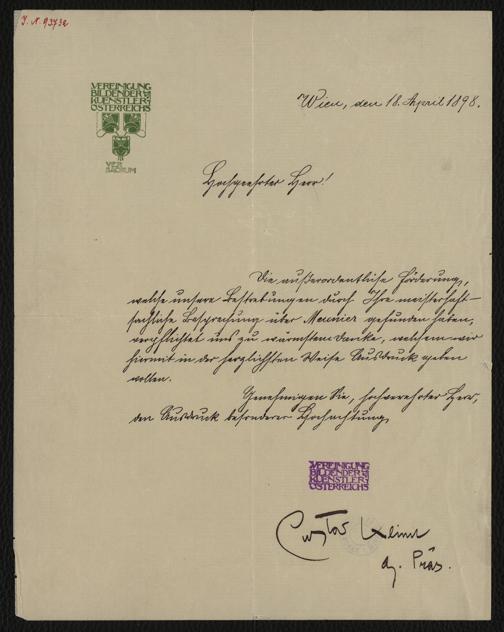 J. N. 93732
VEREINIGUNG
BILDENDER
KUENSTLER
ÖSTERREICHS
VER
SACRUM
Wien, den 18. April 1898.
Hochgeehrter Herr!
Die außerordentliche Förderung,
welche unsere Bestrebungen durch Ihre meisterhaft-
sachliche Besprechung über Meunier gefunden haben,
verpflichtet uns zu wärmstem Danke, welchem wir
hiermit in der herzlichsten Weise Ausdruck geben
wollen.
Genehmigen Sie, hochverehrter Herr,
den Ausdruck besonderer Hochachtung
VEREINIGUNG
BILDENDER
KUENSTLER
ÖSTERREICHS
Gustav Klimt
Präs.